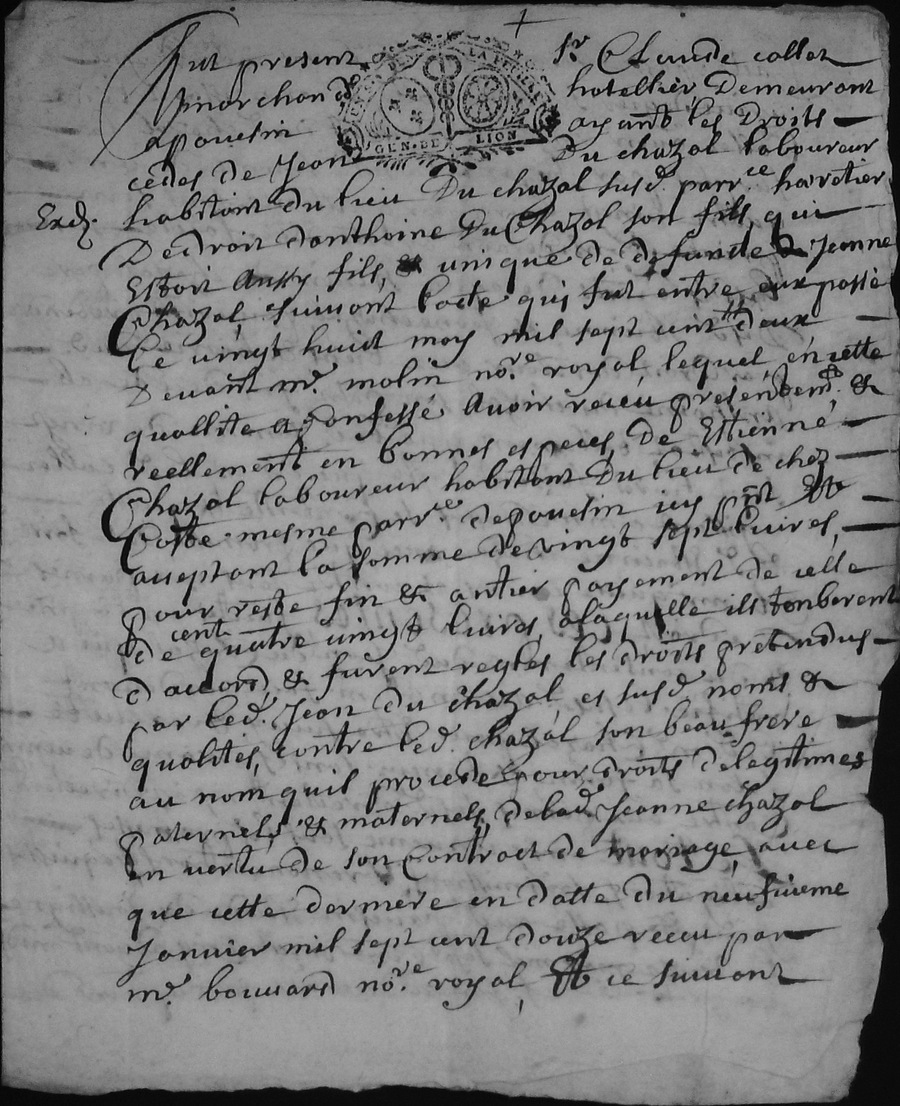 +
Fut present Sr Claude collet
marchand hotellier Demeurant
apouesin ayant les Droits
GEN. DE LION
cédés de Jean Du chazal laboureur
Exd.
habitant du lieu Du chazal susd. parr.ce haeritier
De droit danthoine Du Chazal son fils qui
Estoit Aussy fils & unique de defuncte Jeanne
Chazal, suivant lacte qui fut entre eux passé
Le vingt huict may mil sept cent deux
Devant me. molin no.re royal, lequel en cette
quallite a Confessé Avoir receu presentemt. &
reellement en bonnes especes, De Estienne
Chazal laboureur habitant Du lieu de chez
Coste mesme parr.ce depouesin icy pnt &
aceptant la somme de vingt sept livres,
pour reste fin & antier payement de celle
cent
de quatre vingt livres, alaquelle ils tomberent
d'accord, & furent regles les droits pretendus
par led. Jean du chazal es susd. noms &
qualités, contre led. chazal son beau frere
au nom quil procede, pour droits de legitimes
paternels & maternels, delad. Jeanne chazal
En vertu de son Contract de mariage, avec
que cette derniere en datte du neufvieme
Janvier mil sept cent douze receu par
me. bouvard no.re royal, Et ce suivant